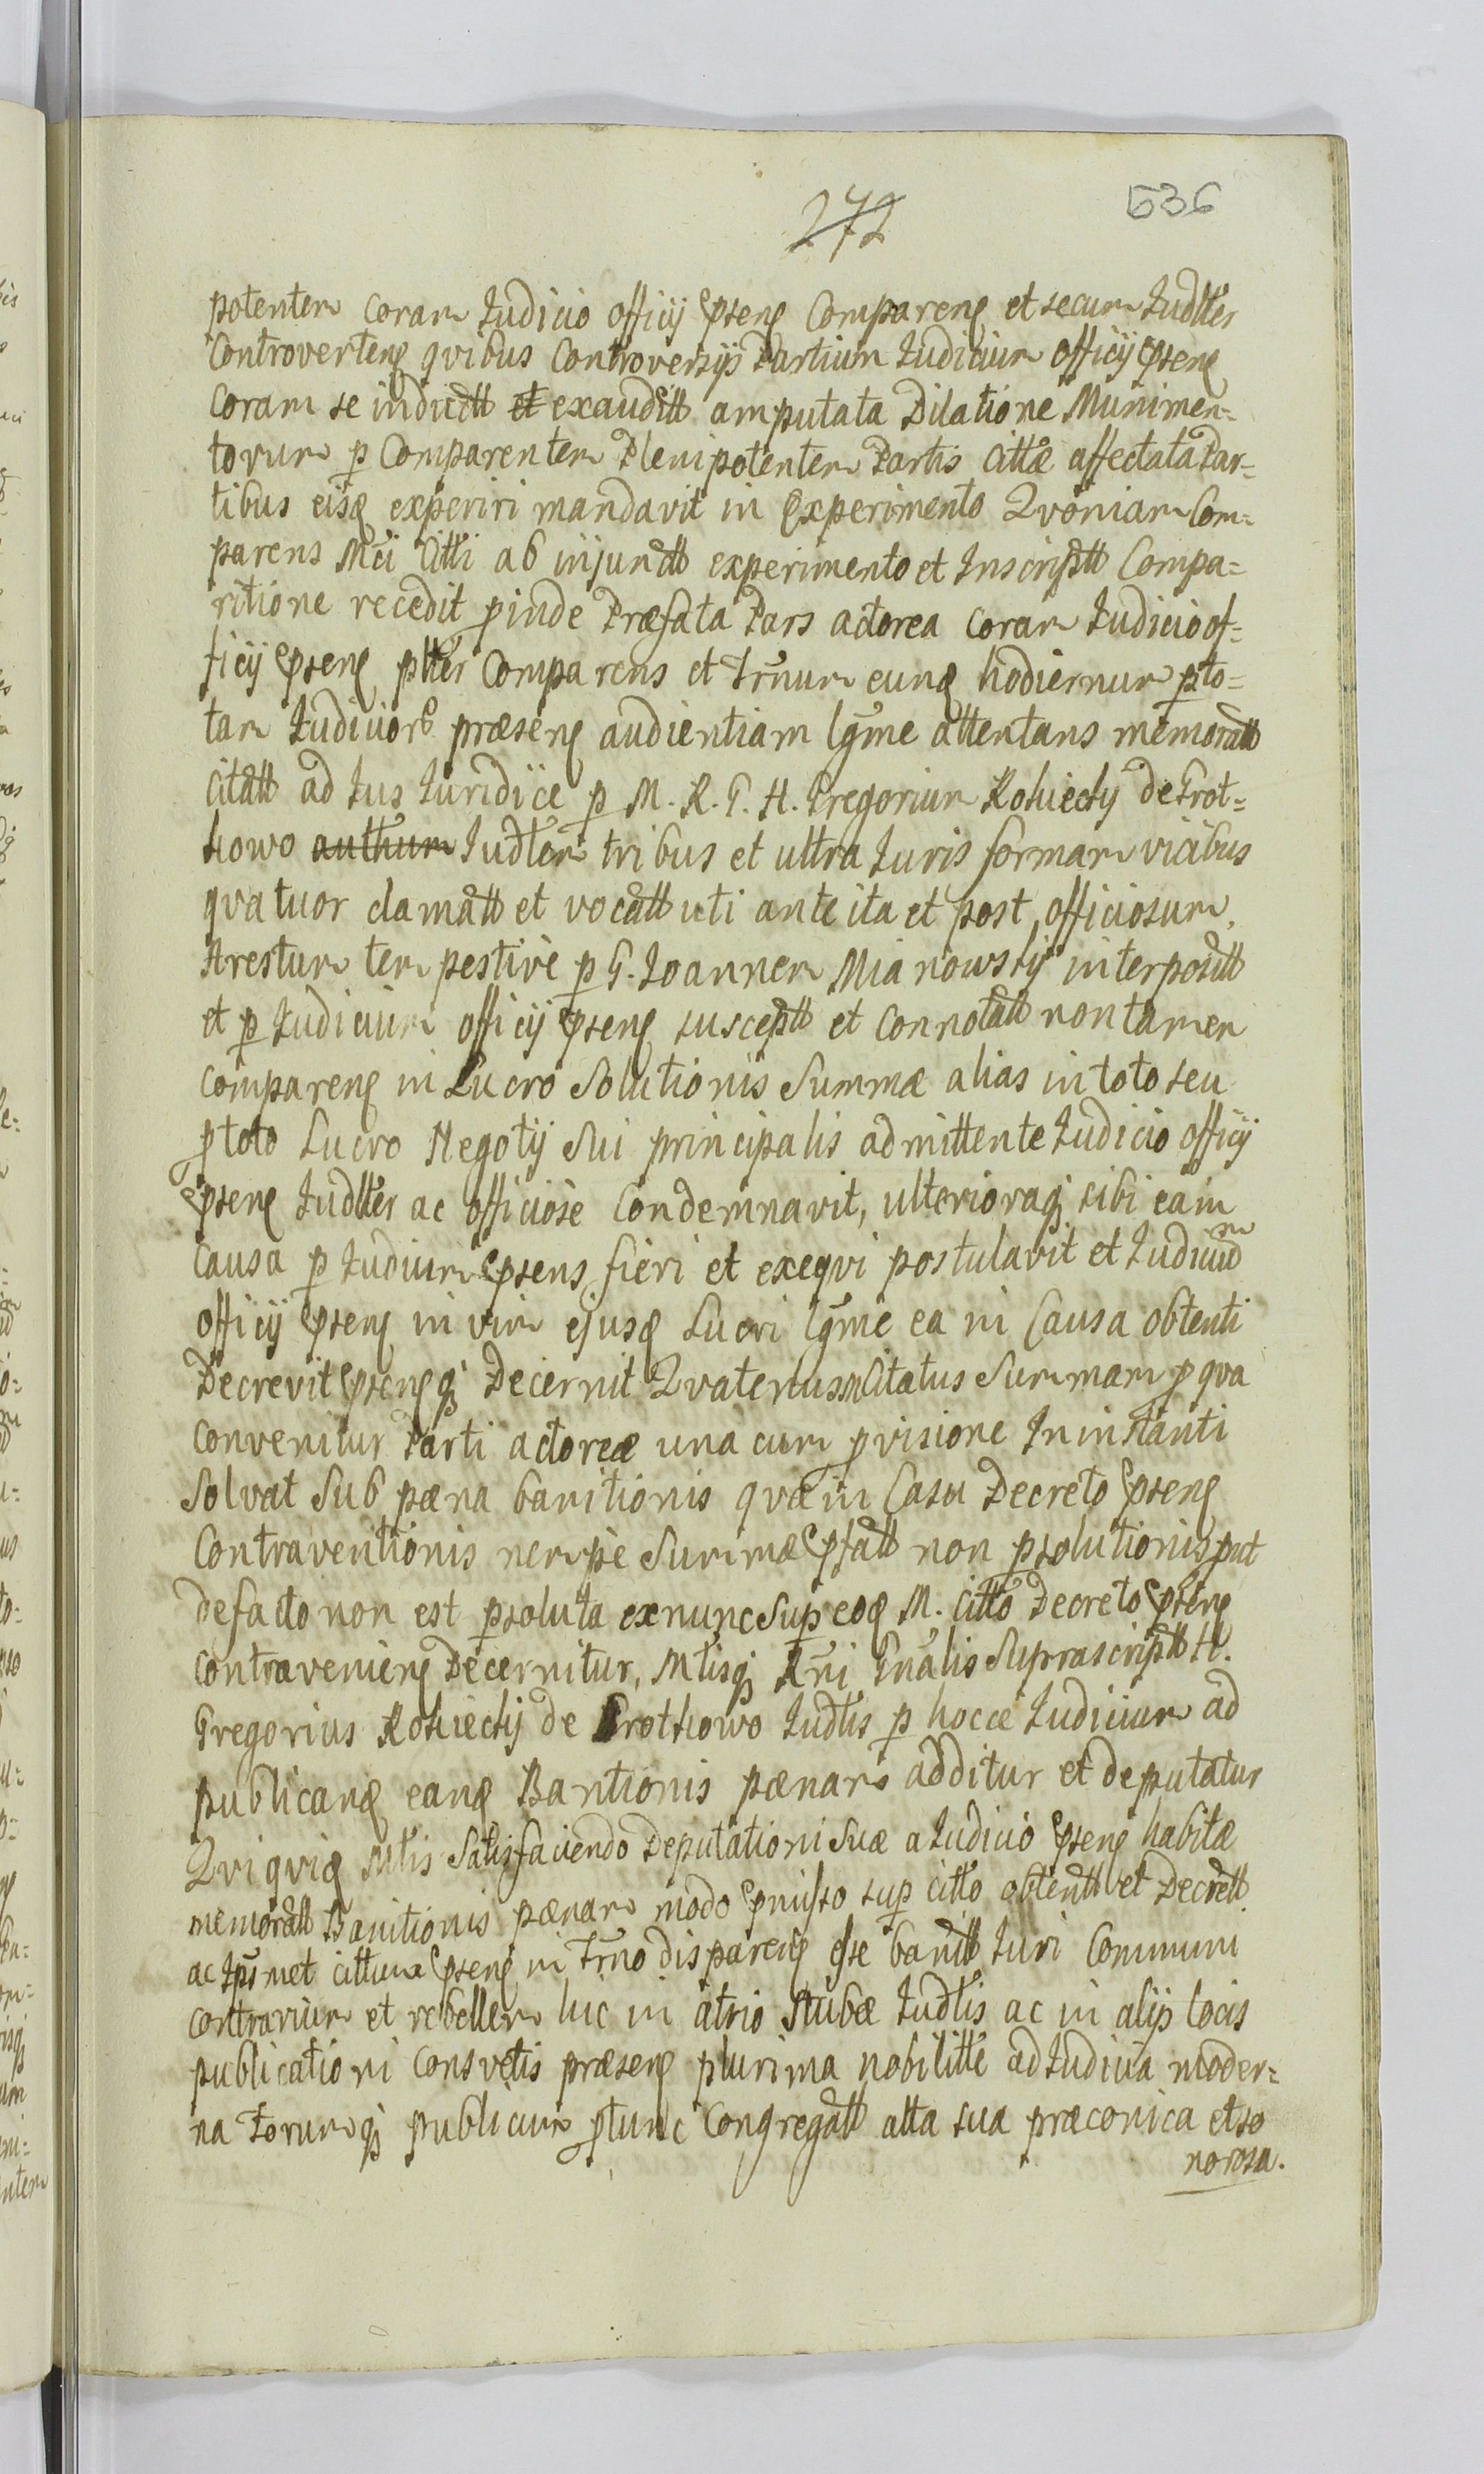 272
536
potentem coram Judicio officij pñeng Compareng et secum Judltes
Controverteng qvibus Controversijs Partium Judicium officij pñeng
coram se inductt et exauditt amputata Dilatione Munimen=
torum p Comparentem Plenipotentem Partis Cittæ affectata Par=
tibus eisq experiri mandavit in Experimento Qvoniam Com=
parens Mci Citti ab injunctt experimento et Inscriptt Compa=
ritione recedit pinde Præfata Pars actorea coram Judicio of=
ficij pñeng plter Comparens et Trnum eunq hodiernum pto=
tam Judicior præseng audientiam lgme attentans memoratt
citatt ad Jus Juridice p M. R. G. H. Gregorium Rokicky de Prot=
kowo authum Judltem tribus et ultra Juris formam vicibus
qvatuor clamatt et vocatt uti ante ita et post officiosum
Arestum tempestive p G. Joannem Mianowsky interpositt
et p Judicium officij pñeng susceptt et Connotatt non tamen
compareng in Lucro Solutionis Summæ alias in toto seu
ptoto Lucro Negotij Sui principalis admittente Judicio officij
pñeng Judlter ac officiose Condemnavit, ulterioraq sibi ea in
causa p Judicium pñens fieri et exeqvi postulavit et Judicium
officij pñeng in vim ejusq Lucri lgme ea in Causa obtenti
Decrevit pñengq Decernit Qvatenus Citatus Summam p qva
convenitur Parti actoreæ una cum pvisione In instanti
Solvat Sub pæna banitionis qvæ in Casu Decreto pñeng
Contraventionis nempe Summæ pfatt non psolutionis put
defacto non est psoluta exnunc Sup eoq M. citto Decreto pñeng
contravenieng Decernitur, Mtisq Rni Gnalis Suprascriptt H.
Gregorius Rokicky de Grotkowo Judlis p hocce Judicium ad
publicanq eanq Banitionis pænam additur et deputatur
Qvi qviq Mtis Satisfaciendo Deputationi Suæ a Judicio pñeng habitæ
memoratt Banitionis pænam modo pmisso sup citto obtentt et Decrett
ac Ipsmet cittum pñeng in Trno dispareng esse banitt Juri Communi
contrarium et rebellem hic in atrio Stubæ Judlis ac in alijs locis
publicationi Consvetis præseng plurima nobilitte ad Judicia moder=
na Forumq publicum ptunc Congregatt alta sua præconica et so
norosa.